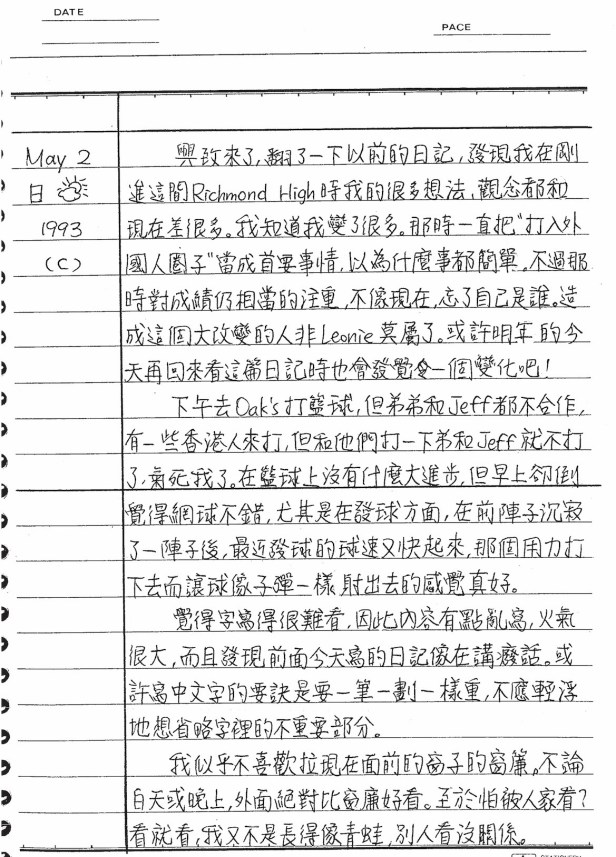 DATE
PACE
May 2
日
1993
(C)
興致來了,翻了一下以前的日記,發現我在剛
進這間Richmond High時我的很多想法、觀念都和
現在差很多。我知道我變了很多。那時一直把"打入外
國人圈子"當成首要事情,以為什麼事都簡單。不過那
時對成績仍相當的注重,不像現在,忘了自己是誰。造
成這個大改變的人非Leonie莫屬了。或許明年的今
天再回來看這篇日記時也會發覺一個變化吧!
下午去Oak's打籃球,但弟弟和Jeff都不合作,
有一些香港人來打,但和他們打一下弟和Jeff就不打
了,氣死我了。在籃球上沒有什麼大進步,但早上卻倒
覺得網球不錯,尤其是在發球方面,在前陣子沉寂
了一陣子後,最近發球的球速又快起來,那個用力打
下去而讓球像子彈一樣射出去的感覺真好。
覺得字寫得很難看,因此內容有點亂寫,火氣
很大,而且發現前面今天寫的日記像在講廢話。或
許寫中文字的要訣是要一筆一劃一樣重,不應輕浮
地想省略字裡的不重要部分。
我似乎不喜歡拉現在面前的窗子的窗簾。不論
白天或晚上,外面絕對比窗廉好看。至於怕被人家看?
看就看,我又不是長得像青蛙,別人看沒關係。